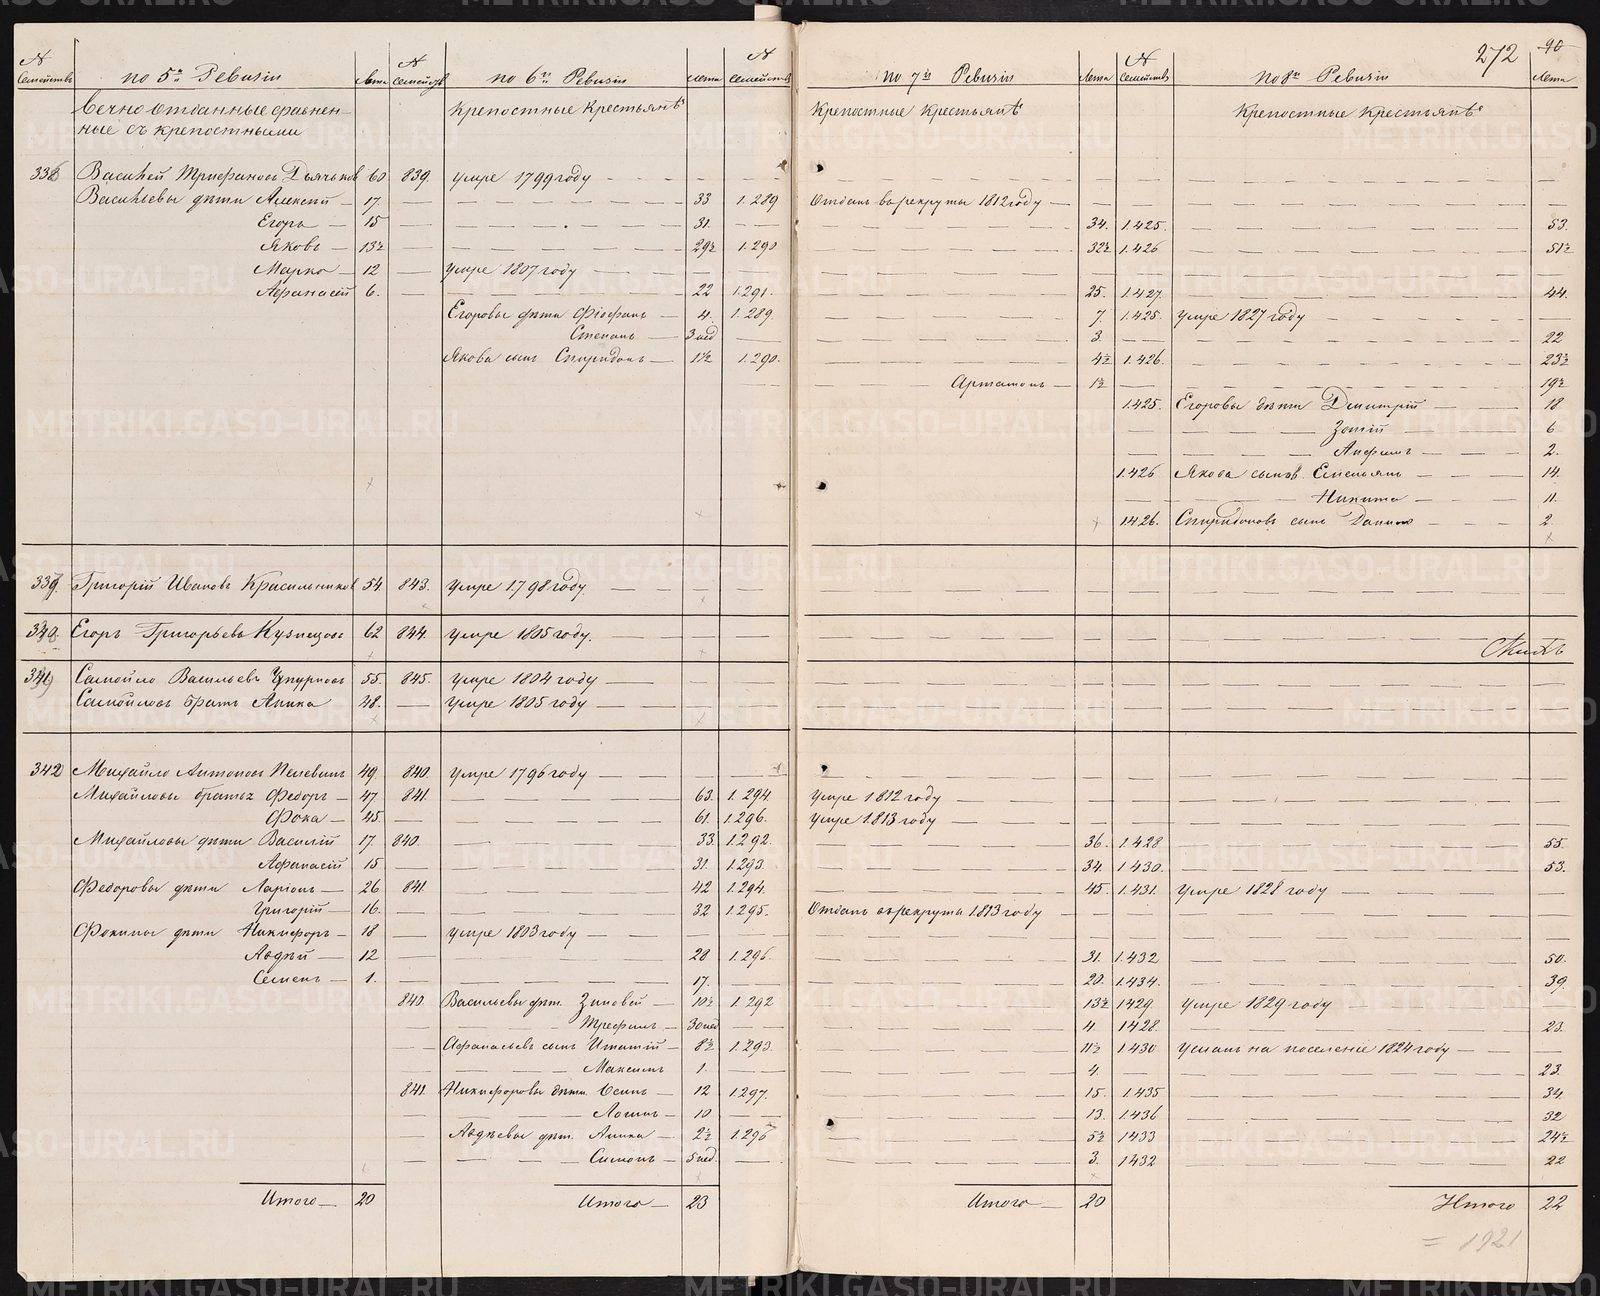 № Семействъ
по 5й Ревизіи
Лета
№ Семействъ
по 6й Ревизіи
Лета
№ Семействъ
по 7й Ревизіи
Лета
№ Семействъ
по 8й Ревизіи
272
90
Лета
вечно отданные сравнен-
ные съ крепостными
Крепостные Крестьянѣ
Крепостные Крестьянѣ
Крепостные Крестьянѣ
338 Василей Трифановъ Дьячьковъ 60 839. умре 1799 году
Васильевы дѣти Алексѣй 17. 33 1.289 Отданъ въ рекруты 1812 году
Егоръ 15 31. 34. 1.425. 53.
Яковъ 13½ 29½ 1.290 32½ 1.426 51½
Марко 12 умре 1807 году
Афанасій 6. 22 1.291. 25. 1.427. 44.
Егоровы дѣти Фіофанъ 4. 1.289. 7. 1.425. умре 1827 году
Степанъ 3 нед 3. 22
Якова сынъ Спиридонъ 1½ 1.290. 4½ 1.426. 23½
Артамонъ 1½ 19½
1.425. Егоровы дѣти Дмитрій 18
Зотій 6
Анфимъ 2.
1.426. Якова сынов. Емельянъ 14.
Никита 11.
1426. Спиридоновъ сынъ Данило 2.
339. Григорій Ивановъ Красильниковъ 54. 843. умре 1798 году
340. Егоръ Григорьевъ Кузнецовъ 62 844. умре 1805 году.
341 Самойло Васильевъ 55. 845. умре 1804 году
Самойловъ братъ Аника 48. умре 1805 году
342 Михайло Антоновъ Пелевинъ 49. 840. умре 1796 году
Михайловы братья Федоръ 47. 841. 63. 1.294. умре 1812 году
Фока 45. 61. 1.296. умре 1813 году
Михайловы дѣти Василій 17. 840. 33. 1.292. 36. 1.428 55.
Афанасій 15 31. 1.293. 34. 1.430. 53.
Федоровы дѣти Ларіонъ 26 841. 42 1.294. 45. 1.431. умре 1828 году
Григорій 16. 32 1.295. Отданъ въ рекруты 1813 году
Фокины дѣти Никифоръ 18 умре 1803 году
Авдѣй 12 28 1.296. 31. 1.432 50.
Семенъ 1. 17. 20. 1.434. 39.
840. Васильевы дѣт. Зиновей 10½ 1.292 13½ 1429 умре 1829 году
Трефилъ 30 нед 4. 1428. 23.
Афанасьевъ сынъ Игнатій 8½ 1.293. 11½ 1.430 усланъ на поселеніе 1824 году
Максимъ 1. 4. 23.
841. Никифоровы дѣти Осипъ 12 1.297. 15. 1.435 34.
Логинъ 10 13. 1.436 32
Авдѣевы дѣт. Аника 2½ 1.296 5½ 1433 24½
Симонъ 5 нед. 3. 1432 22
Итого 20
Итого 23
Итого 20
Итого 22
= 1921
METRIKI.GASO-URAL.RU